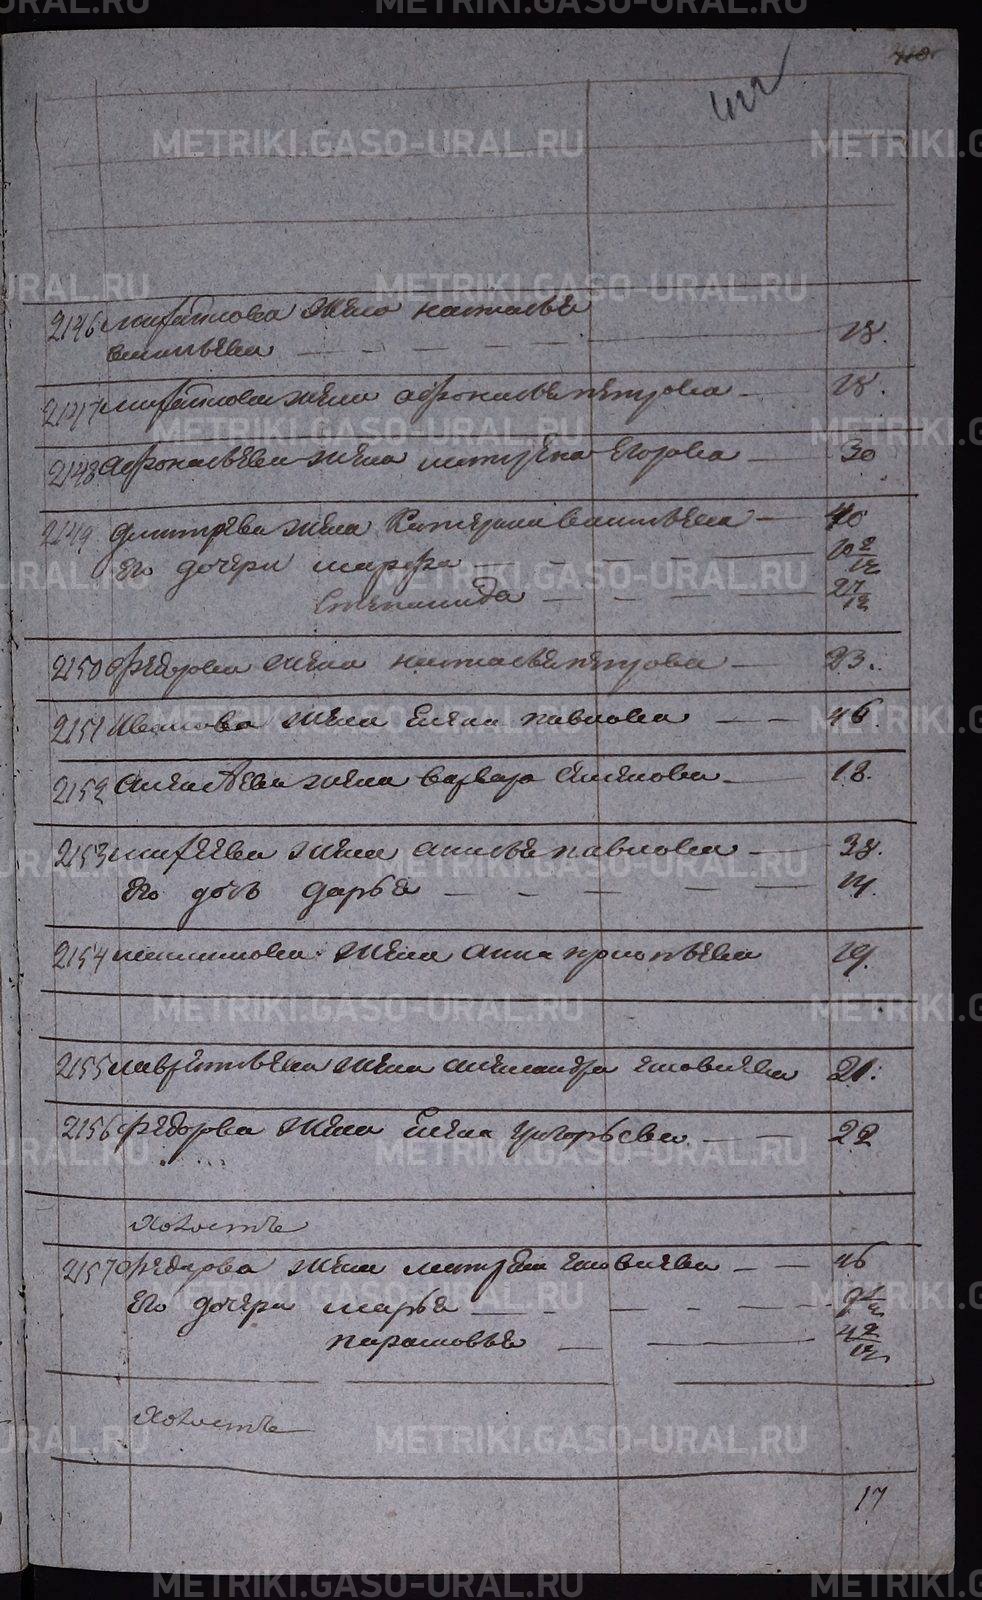 422
2146 Михайлова жена настасья
васильева — 18.
2147 Михайлова жена афонасья петрова — 18.
2148 Афонасьева жена матрена Егорова — 30
2149 Дмитрева жена Катерина васильева — 40
Его дочери марфа — 10 2/12
Степанида — 2 7/12
2150 Федорова жена настасья петрова — 23.
2151 Иванова жена Елена павлова — 46.
2152 Алексеева жена варвара Семенова — 18.
2153 михеева жена анисья павлова — 38.
Его дочь дарья — 14.
2154 жена анна прокопьева 19.
2155 лаврентьева жена александра яковлева 21.
2156 Федорова жена Елена григорьева — 22
Холостъ
2157 Федорова жена матрена яковлева — 46
Его дочери марья —
парасковья — 4 2/12
Холостъ
17
METRIKI.GASO-URAL.RU